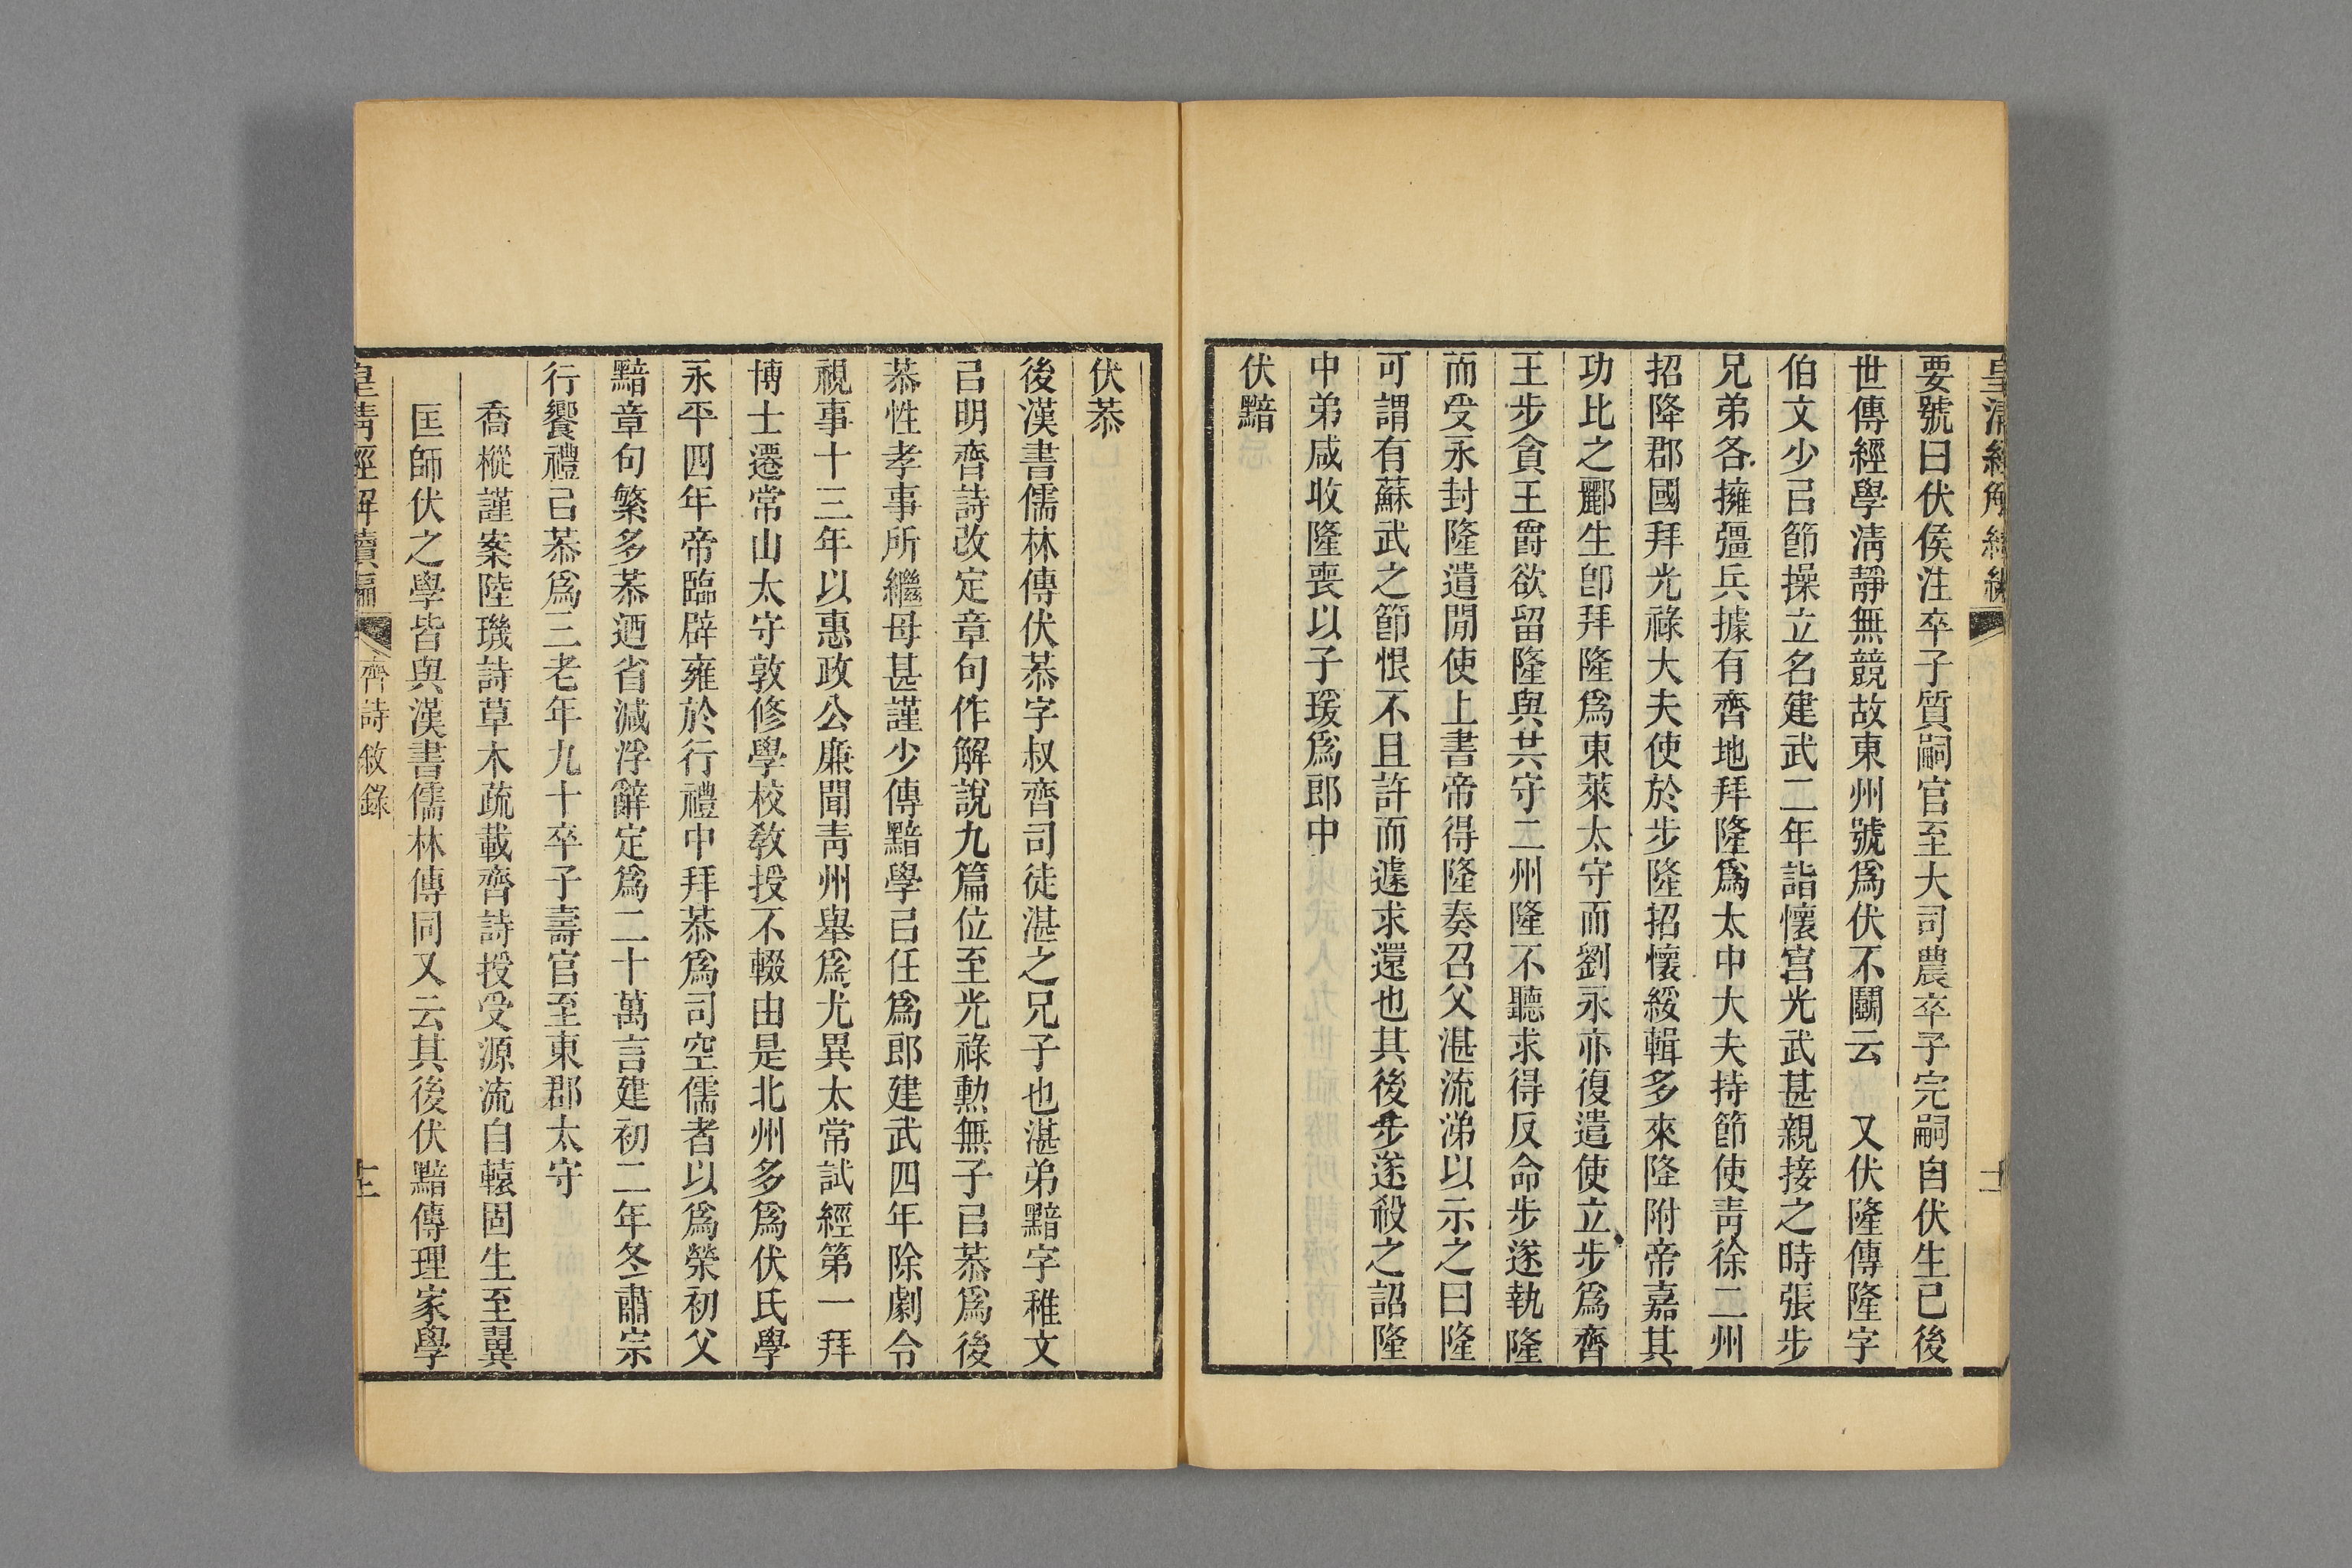 皇清經解續編
十一
要號曰伏侯注卒子質嗣官至大司農卒子完嗣自伏生已後
世傳經學淸靜無競故東州號爲伏不鬭云　又伏隆傳隆字
伯文少㠯節操立名建武二年詣懷宮光武甚親接之時張步
兄弟各擁彊兵據有齊地拜隆爲太中大夫持節使靑徐二州
招降郡國拜光祿大夫使於步隆招懷綏輯多來降附帝嘉其
功比之酈生卽拜隆爲東萊太守而劉永亦復遣使立步爲齊
王步貪王爵欲留隆與共守二州隆不聽求得反命步遂執隆
而受永封隆遣閒使上書帝得隆奏召父湛流涕以示之曰隆
可謂有蘇武之節恨不且許而遽求還也其後步遂殺之詔隆
中弟咸收隆喪以子瑗爲郎中
伏黯
伏恭
後漢書儒林傳伏恭字叔齊司徒湛之兄子也湛弟黯字稚文
㠯明齊詩改定章句作解說九篇位至光祿勳無子㠯恭爲後
恭性孝事所繼母甚謹少傳黯學㠯任爲郎建武四年除劇令
視事十三年以惠政公廉聞靑州舉爲尤異太常試經第一拜
博士遷常山太守敦修學校敎授不輟由是北州多爲伏氏學
永平四年帝臨辟雍於行禮中拜恭爲司空儒者以爲榮初父
黯章句繁多恭迺省減浮辭定爲二十萬言建初二年冬肅宗
行饗禮㠯恭爲三老年九十卒子壽官至東郡太守
喬樅謹案陸璣詩草木疏載齊詩授受源流自轅固生至翼
匡師伏之學皆與漢書儒林傳同又云其後伏黯傳理家學
皇淸經解續編
齊詩敘錄